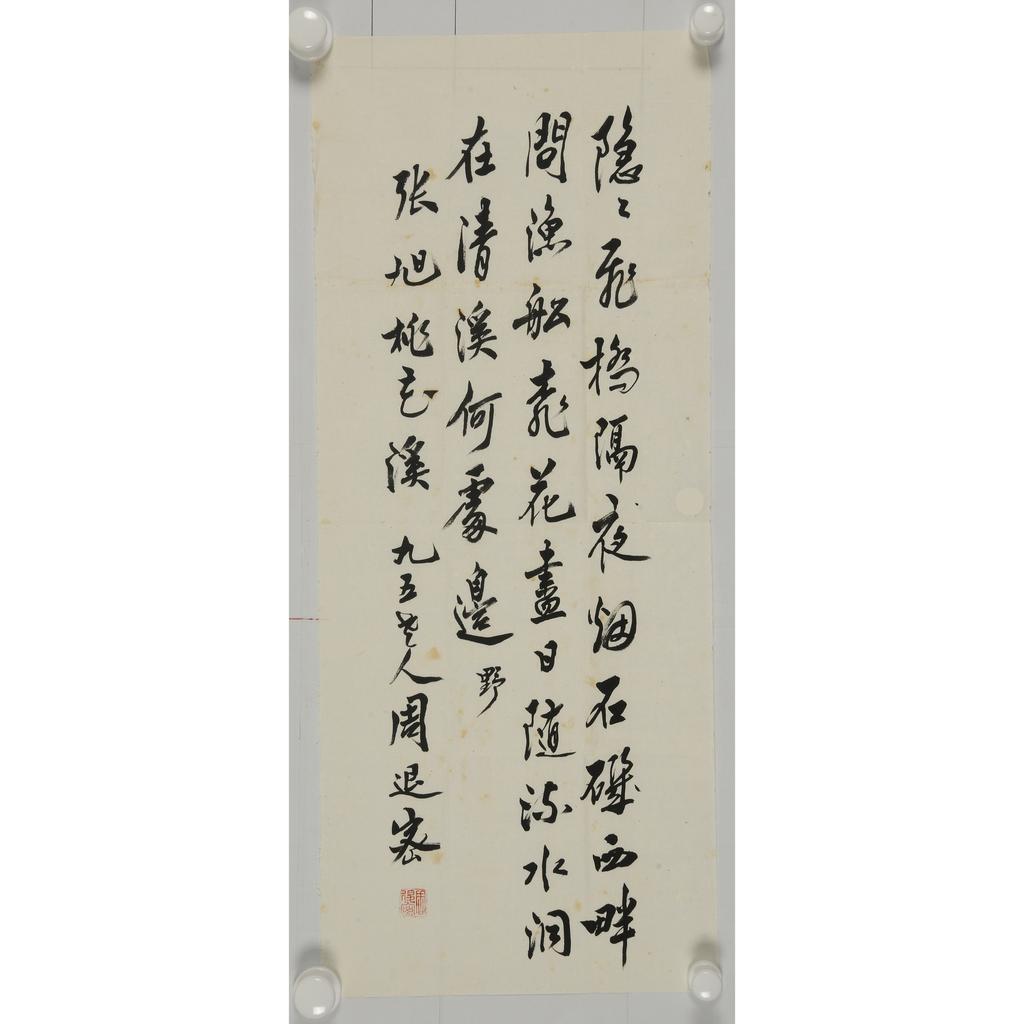 隱〻飛橋隔夜烟石磯西畔
問漁船桃花盡日隨流水洞
在清溪何處邊 野
張旭桃花溪 九五老人周退密
周退密